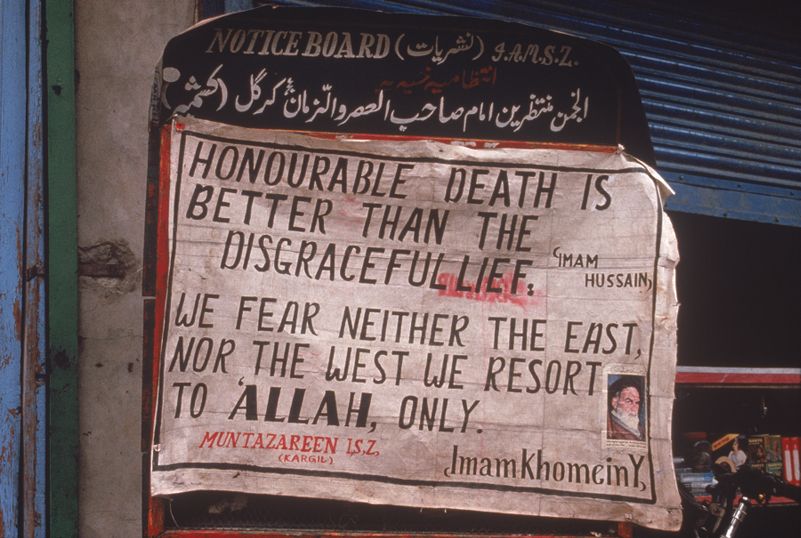 NOTICE BOARD (نشریات) J.A.M.S.Z.
انتظامیہ
انجمن منتظرین امام صاحب العصر والزمانؑ کرگل (کشمیر)
HONOURABLE DEATH IS
BETTER THAN THE
DISGRACEFUL LIEF. (IMAM
HUSSAIN)
WE FEAR NEITHER THE EAST,
NOR THE WEST WE RESORT
TO 'ALLAH, ONLY.
MUNTAZAREEN I,S,Z,
(KARGIL)
Imam KhomeinY,